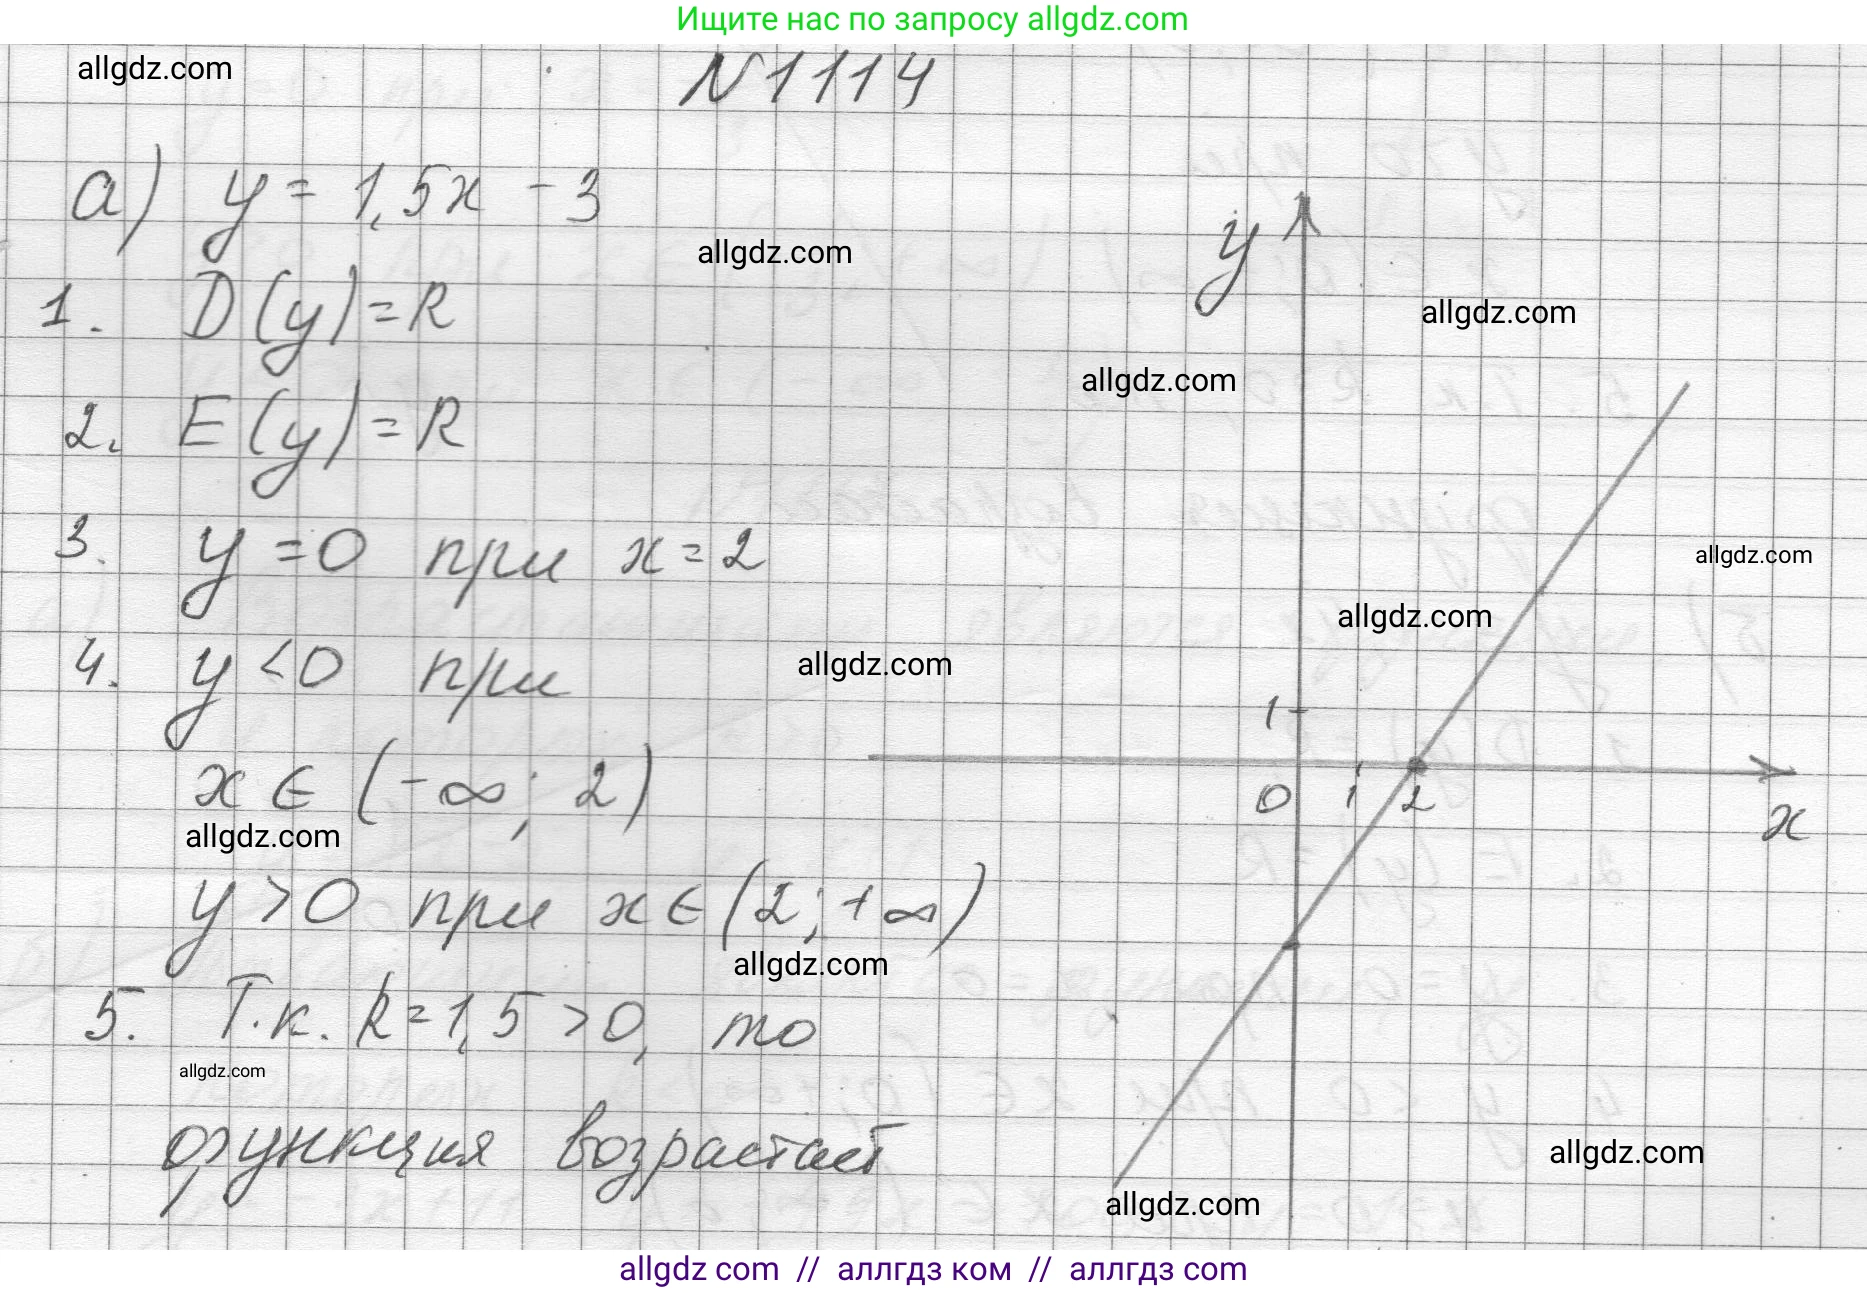 Ищите нас по запросу allgdz.com
allgdz.com
N 1114
а) y = 1,5x - 3
allgdz.com
1. D(y) = R
y
allgdz.com
allgdz.com
2. E(y) = R
3. y = 0 при x = 2
allgdz.com
allgdz.com
4. y < 0 при
allgdz.com
1
x ∈ (-∞; 2)
0 1 2
x
allgdz.com
y > 0 при x ∈ (2; +∞)
allgdz.com
5. Т.к. k = 1,5 > 0, то
allgdz.com
функция возрастает
allgdz.com
allgdz.com
allgdz com // аллгдз ком // аллгдз com